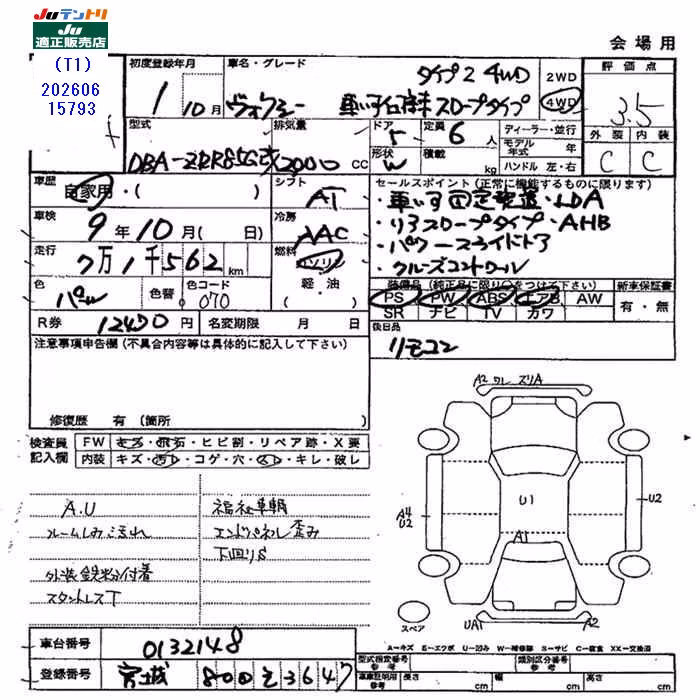 Juテントリ
Ju
適正販売店
(T1)
202606
15793
会場用
初度登録年月
1年10月
車名・グレード
タイプ2 4WD
ヴォクシー 車いす仕様車 スロープタイプ
2WD
4WD
評価点
3.5
外装 内装
C C
型式
DBA-ZRR85G改
排気量
2000 CC
ドア
5
形状
W
定員
6 人
積載
kg
ディーラー・並行
モデル年式 年
ハンドル 左・右
車歴
自家用・( )
シフト
AT
車検
9年10月( 日)
冷房
AAC
走行
7万1千562km
燃料
ガソリン
軽・油
色
パール
色替
カラーコード
070
R券 12470円
名変期限 月 日
セールスポイント(正常に機能するものに限ります)
・車いす固定装置・LDA
・リヤスロープタイプ・AHB
・パワースライドドア
・クルーズコントロール
装備品(純正品に限り○をつけて下さい)
PS PW ABS エアB AW
SR ナビ TV カワ
新車保証書
有・無
後日品
リモコン
注意事項申告欄(不具合内容等は具体的に記入して下さい)
修復歴 有(箇所 )
検査員
記入欄
FW キズ・飛石・ヒビ割・リペア跡・X要
内装 キズ・汚レ・コゲ・穴・スレ・キレ・破レ
A.U
ルームしみ汚れ
外装鉄粉付着
スタットレスT
福祉車輌
エンドパネル歪み
下回りS
A2 ワレ ズリA
U1
A1
A4
U2
U2
UA1
A2
スペア
A-キズ E-エクボ U-凹み W-補修跡 S-サビ C-腐食 XX-交換済
車台番号 0132148
登録番号 宮城 800 そ 3647
型式指定番号
参考
類別区分番号
参考
車庫証明用
参考
長さ cm
幅 cm
高さ cm